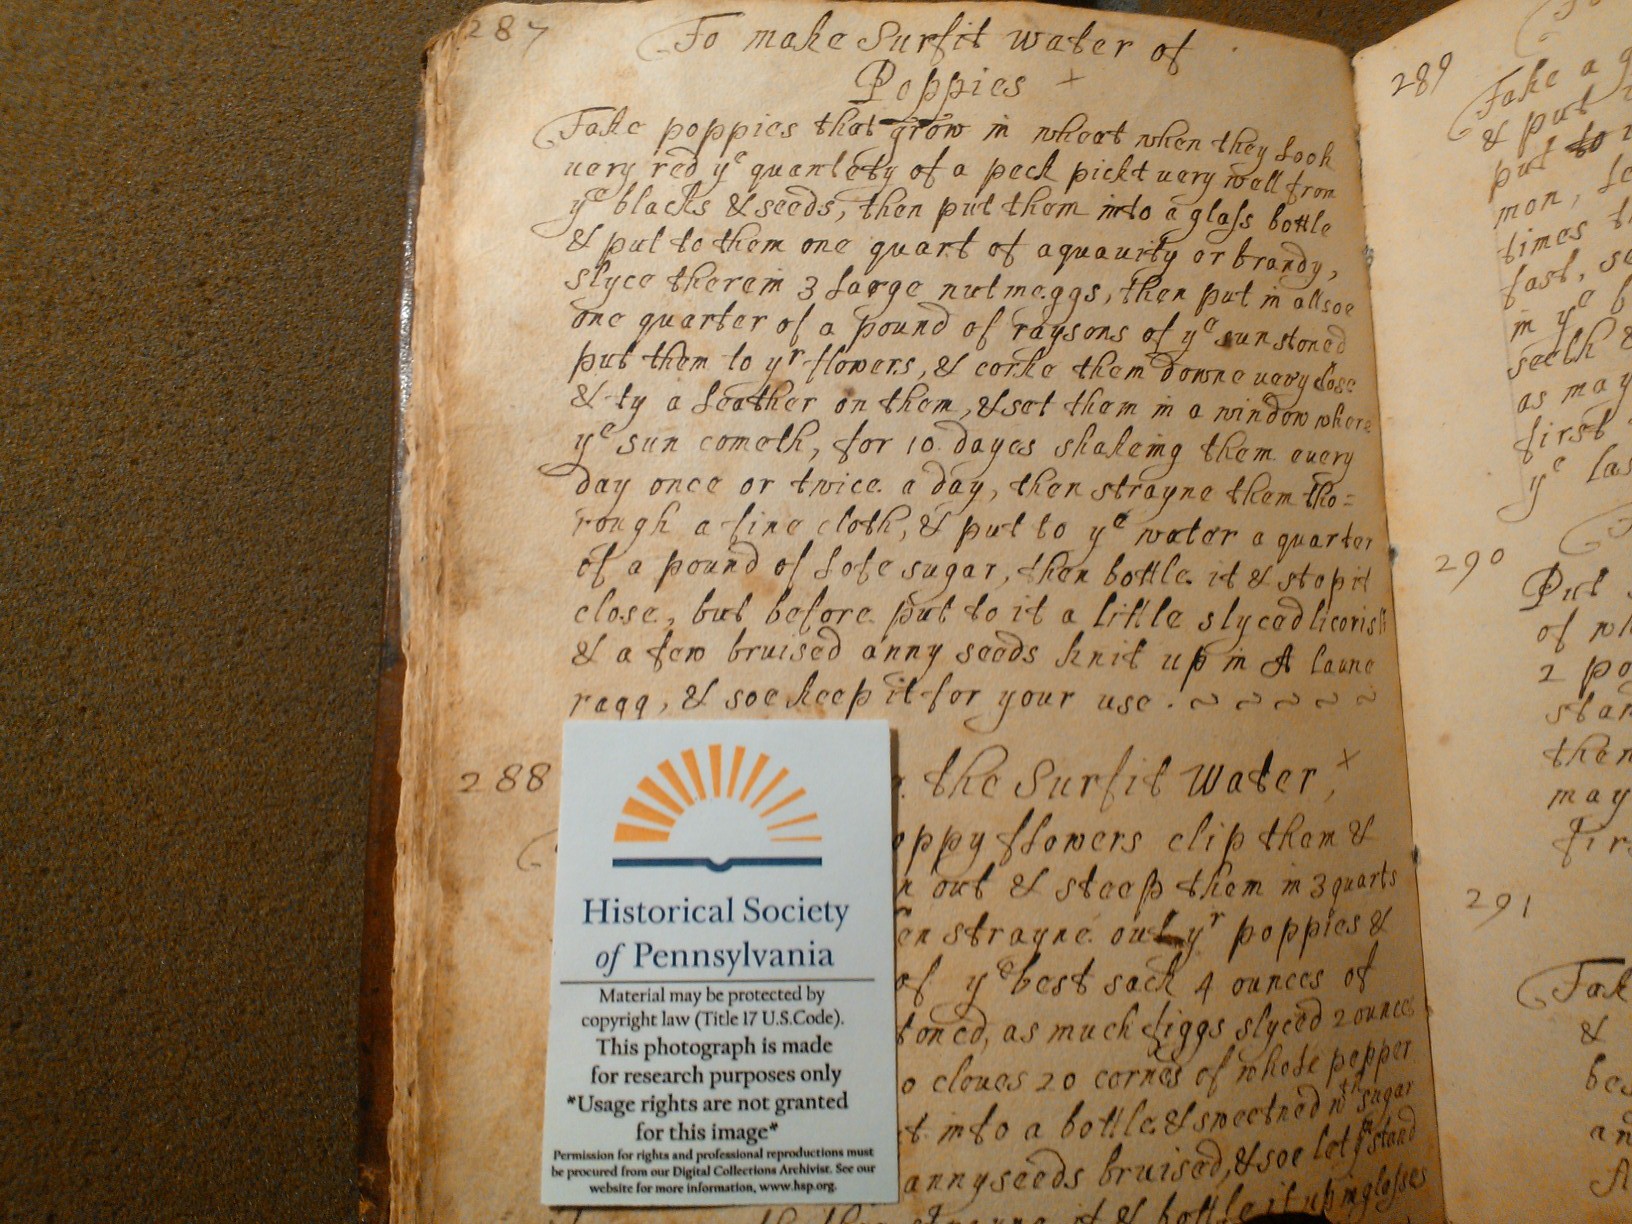 287
To make Surfit Water of
Poppies
Take poppies that grow in wheat when they look
very red yᵉ quantety of a peck pickt very well from
yᵉ blacks & seeds, then put them into a glass bottle
& put to them one quart of aquavity or brandy,
slyce therein 3 large nutmeggs, then put in allsoe
one quarter of a pound of raysons of yᵉ sun stoned
put them to yʳ flowers, & corke them downe very close
& ty a leather on them, & set them in a window where
yᵉ sun cometh, for 10 dayes shakeing them every
day once or twice a day, then strayne them tho=
rough a fine cloth, & put to yᵉ water a quarter
of a pound of lofe sugar, then bottle it & stop it
close, but before put to it a little slyced licorish
& a few bruised anny seeds knit up in A laune
ragg, & soe keep it for your use. ~ ~ ~ ~ ~
288
the Surfit Water,
oppy flowers clip them &
out & steep them in 3 quarts
en strayne out yʳ poppies &
of yᵉ best sack 4 ounces of
toned, as much figgs slyced 2 ounces
cloves 20 cornes of whole pepper
into a bottle & sweetned wᵗʰ sugar
annyseeds bruised, & soe let yᵐ stand
strayne it & bottle it up in glasses
Historical Society
of Pennsylvania
Material may be protected by
copyright law (Title 17 U.S.Code).
This photograph is made
for research purposes only
*Usage rights are not granted
for this image*
Permission for rights and professional reproductions must
be procured from our Digital Collections Archivist. See our
website for more information, www.hsp.org.
289
Take a
& put
put to
mon,
times
fast,
in yᵉ
seeth &
as may
first
yᵉ las
290
Put
of
2 po
stan
then
may
firs
291
Tak
&